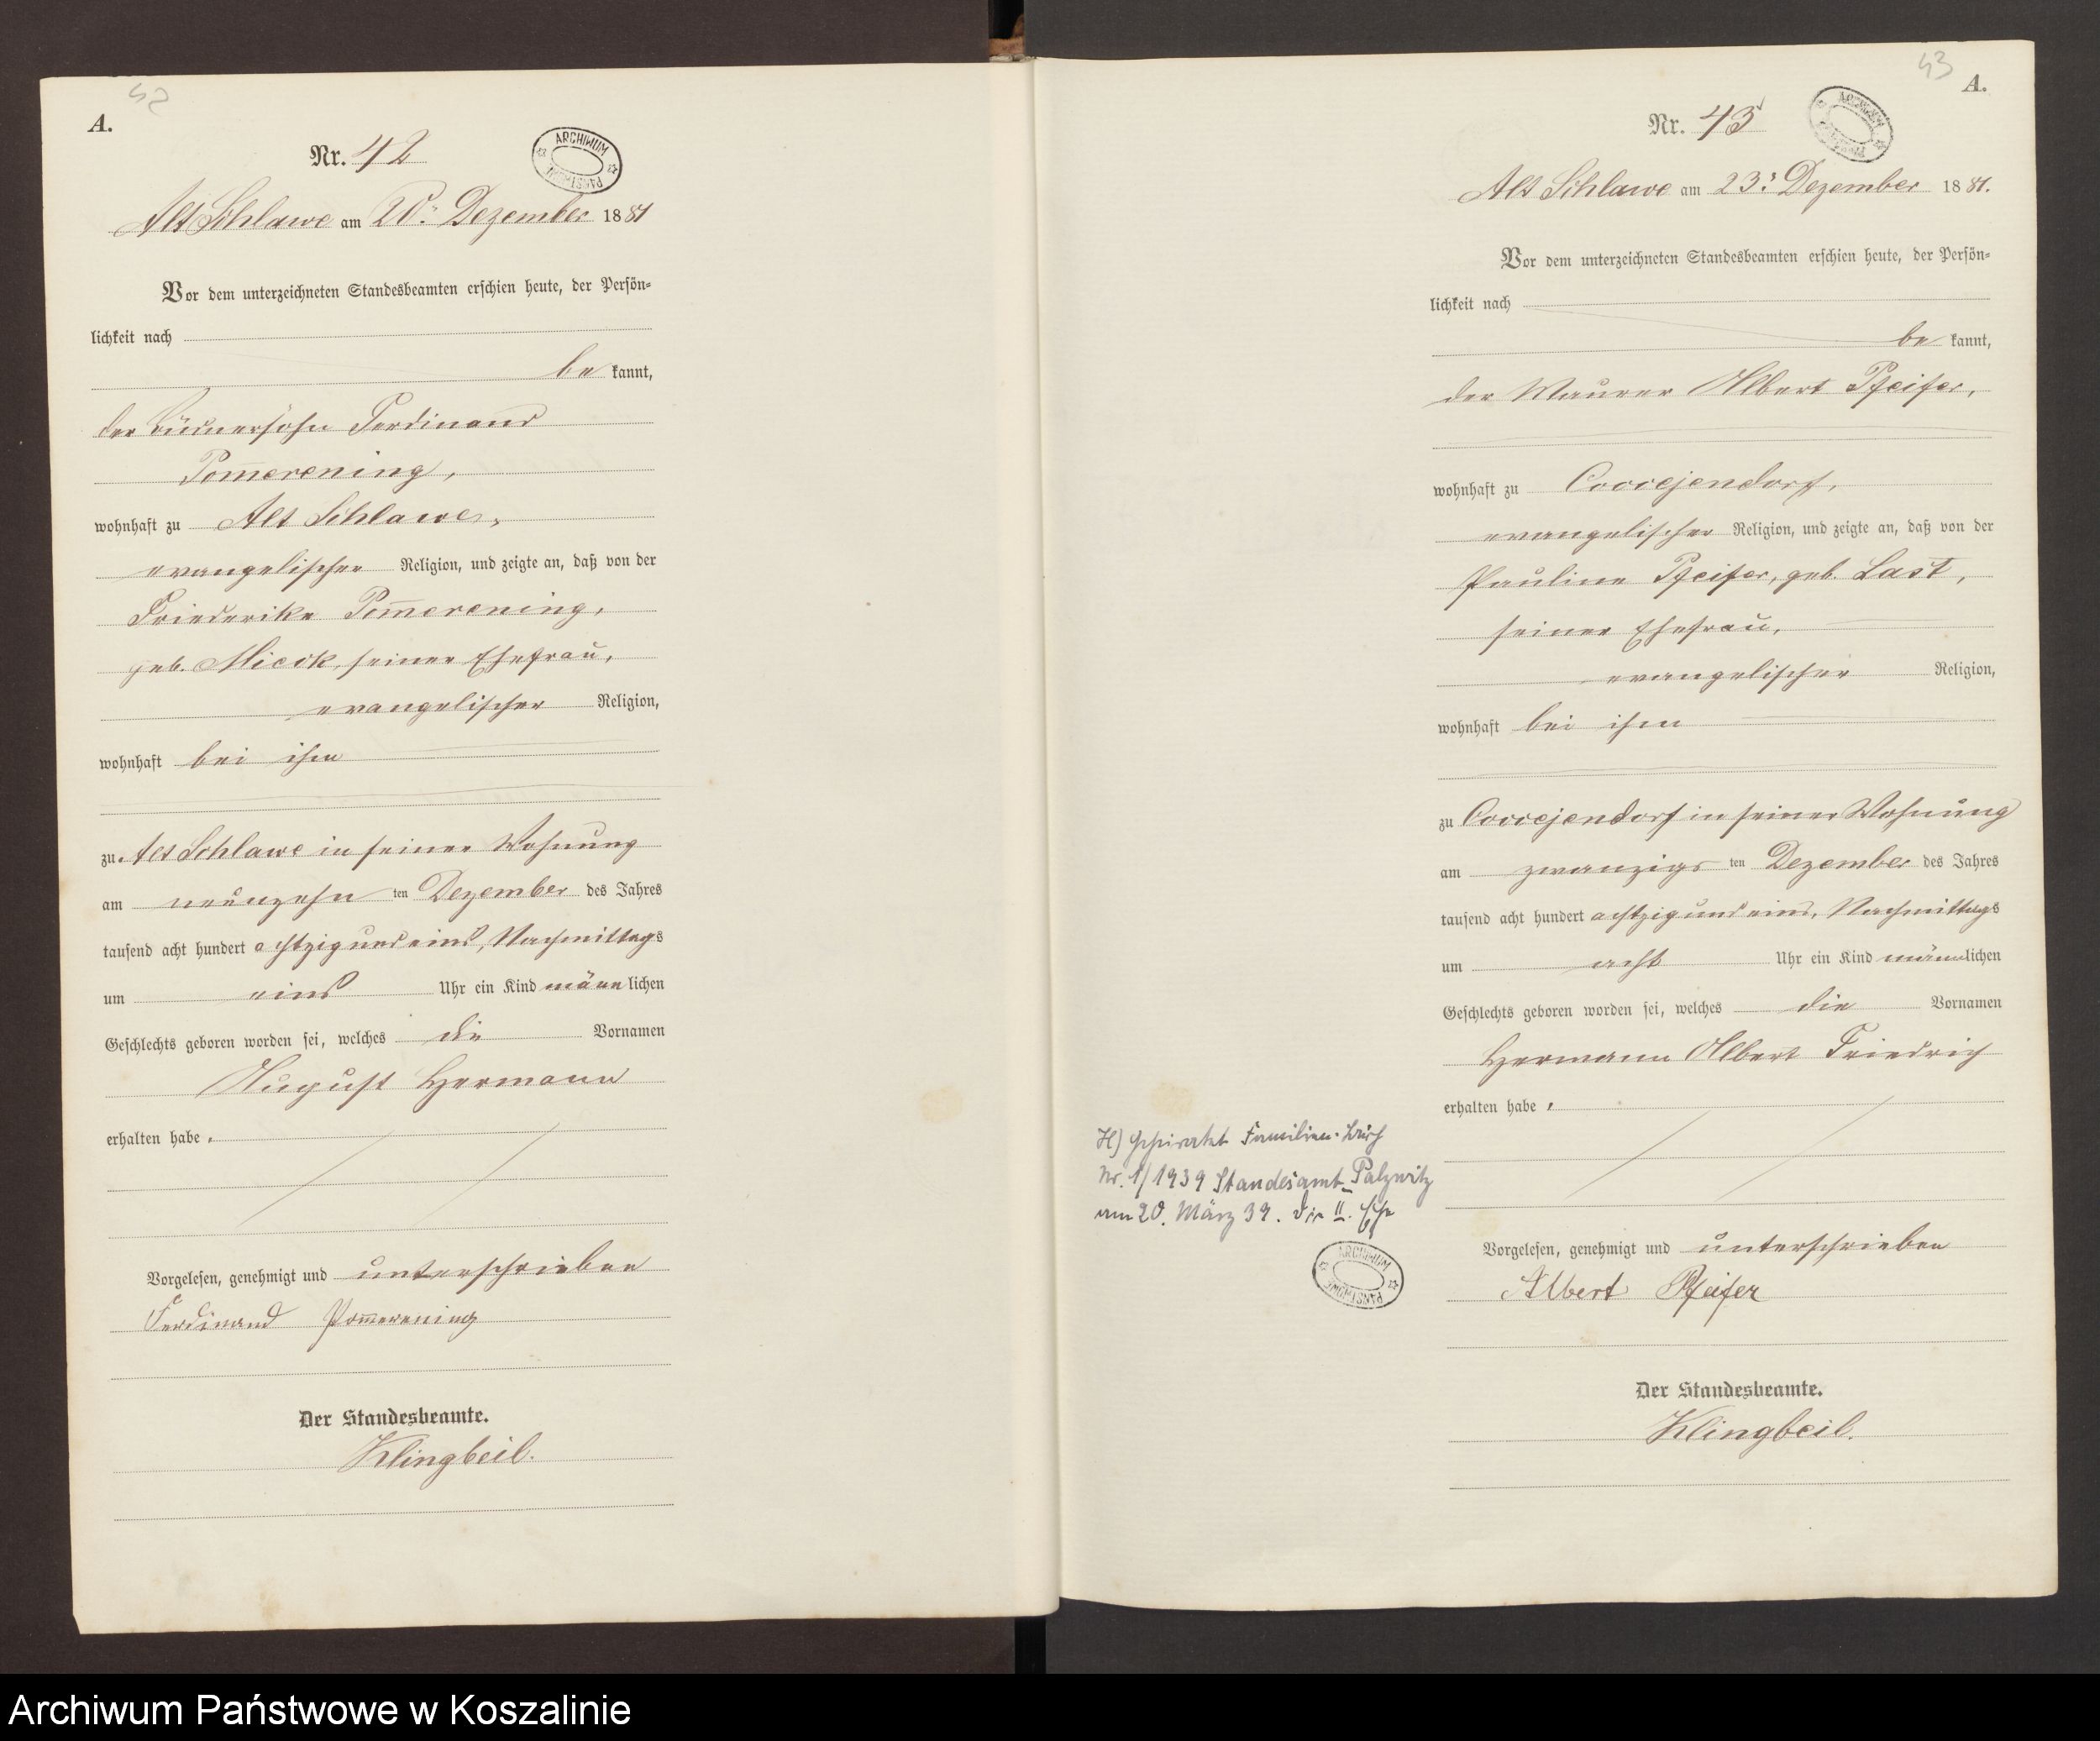 42
A.
Nr. 42
ARCHIWUM PAŃSTWOWE
Alt Schlawe am 20. Dezember 1881
Vor dem unterzeichneten Standesbeamten erschien heute, der Persön-
lichkeit nach
be kannt,
der Büdnersohn Ferdinand
Pom̄erening,
wohnhaft zu Alt Schlawe,
evangelischer Religion, und zeigte an, daß von der
Friederike Pom̄erening,
geb. Micok, seiner Ehefrau,
evangelischer Religion,
wohnhaft bei ihm
zu Alt Schlawe in seiner Wohnung
am neunzehn ten Dezember des Jahres
tausend acht hundert achtzig und eins, Nachmittags
um eins Uhr ein Kind männlichen
Geschlechts geboren worden sei, welches die Vornamen
August Hermann
erhalten habe.
Vorgelesen, genehmigt und unterschrieben
Ferdinand Pom̄erening
Der Standesbeamte.
Klingbeil.
43
A.
Nr. 43
ARCHIWUM PAŃSTWOWE
Alt Schlawe am 23. Dezember 1881.
Vor dem unterzeichneten Standesbeamten erschien heute, der Persön-
lichkeit nach
be kannt,
der Maurer Albert Pfeifer,
wohnhaft zu Coccejendorf,
evangelischer Religion, und zeigte an, daß von der
Pauline Pfeifer, geb. Last,
seiner Ehefrau,
evangelischer Religion,
wohnhaft bei ihm
zu Coccejendorf in seiner Wohnung
am zwanzigs ten Dezember des Jahres
tausend acht hundert achtzig und eins, Nachmittags
um acht Uhr ein Kind männlichen
Geschlechts geboren worden sei, welches die Vornamen
Hermann Albert Friedrich
erhalten habe.
H) geheiratet Familien-buch
Nr. 1/1939 Standesamt Palzwitz
am 20. März 39. die II. Ehe
ARCHIWUM PAŃSTWOWE
Vorgelesen, genehmigt und unterschrieben
Albert Pfeifer
Der Standesbeamte.
Klingbeil.
Archiwum Państwowe w Koszalinie